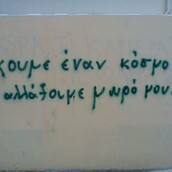 χουμε έναν κόσμο
αλλάξουμε μωρό μου